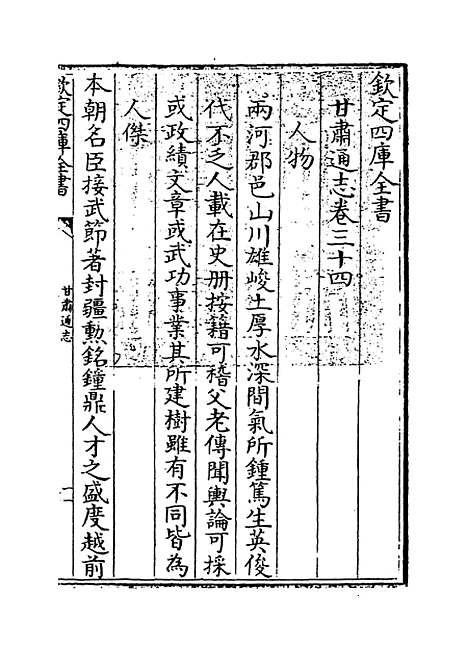 欽定四庫全書
甘肅通志卷三十四
人物
兩河郡邑山川雄峻土厚水深間氣所鍾篤生英俊
代不乏人載在史册按籍可稽父老傳聞輿論可採
或政績文章或武功事業其所建樹雖有不同皆為
人傑
本朝名臣接武節著封疆勲銘鐘鼎人才之盛度越前
欽定四庫全書
甘肅通志
一